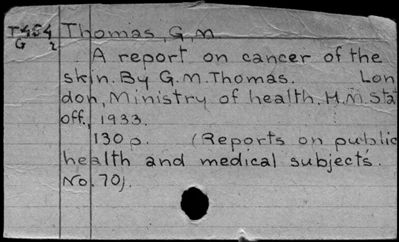 T454 Thomas, G.M.
G 2
A report on cancer of the
skin. By G.M. Thomas. Lon
don, Ministry of health. H.M. Sta
off, 1933.
130 p. (Reports on public
health and medical subjects.
No. 70).